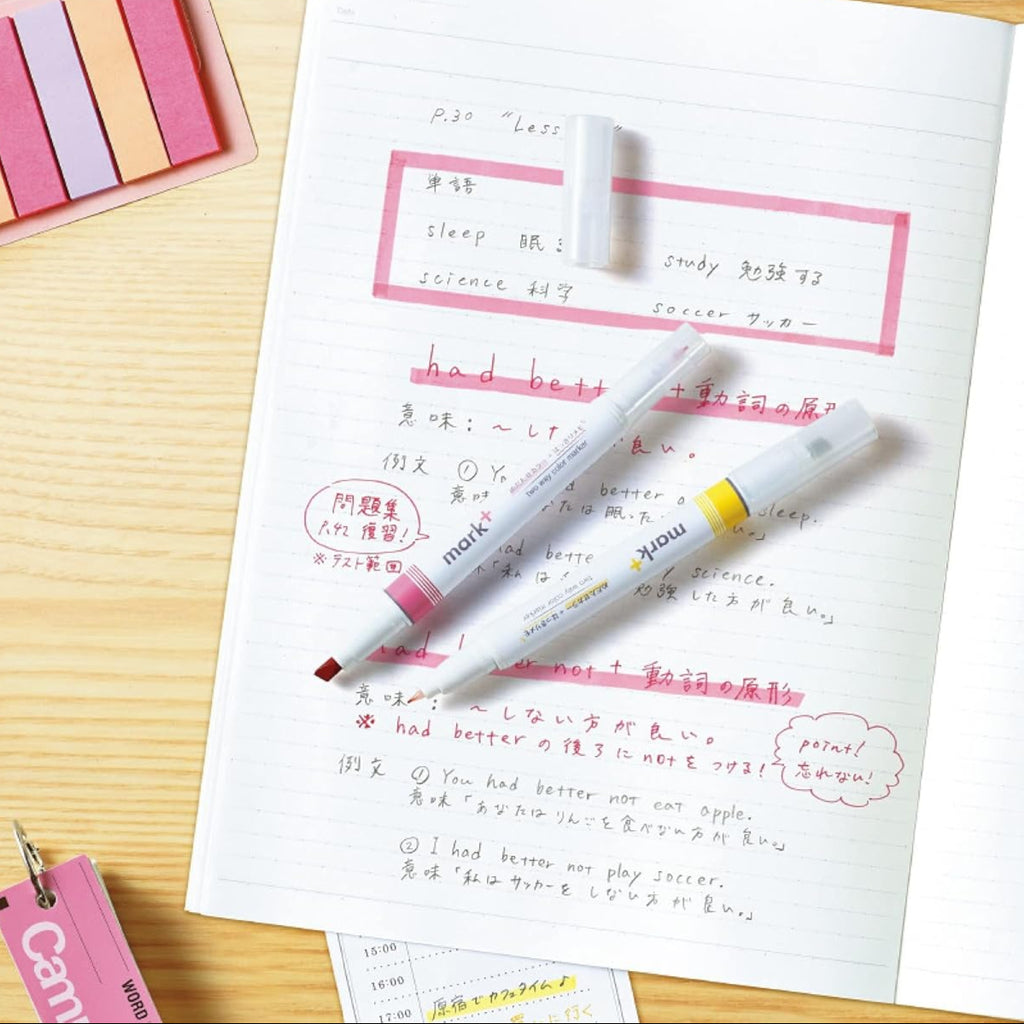 P.30 "Less
単語
sleep 眠
study 勉強する
science 科学
soccer サッカー
had bett + 動詞の原形
意味: 〜した 良い。
例文 ① Yo better sleep.
意味 たは眠った
問題集
P.42 復習!
※テスト範囲
had bette science.
「私は 勉強した方が良い。」
had not + 動詞の原形
意味: 〜しない方が良い。
※ had betterの後ろにnotをつける!
point!
忘れない!
例文 ① You had better not eat apple.
意味「あなたはりんごを食べない方が良い。」
② I had better not play soccer.
意味「私はサッカーをしない方が良い。」
mark+
two way color marker
mark+
two way color marker
Cam
WORD
15:00
16:00
原宿でカフェタイム♪
17:00
に行く